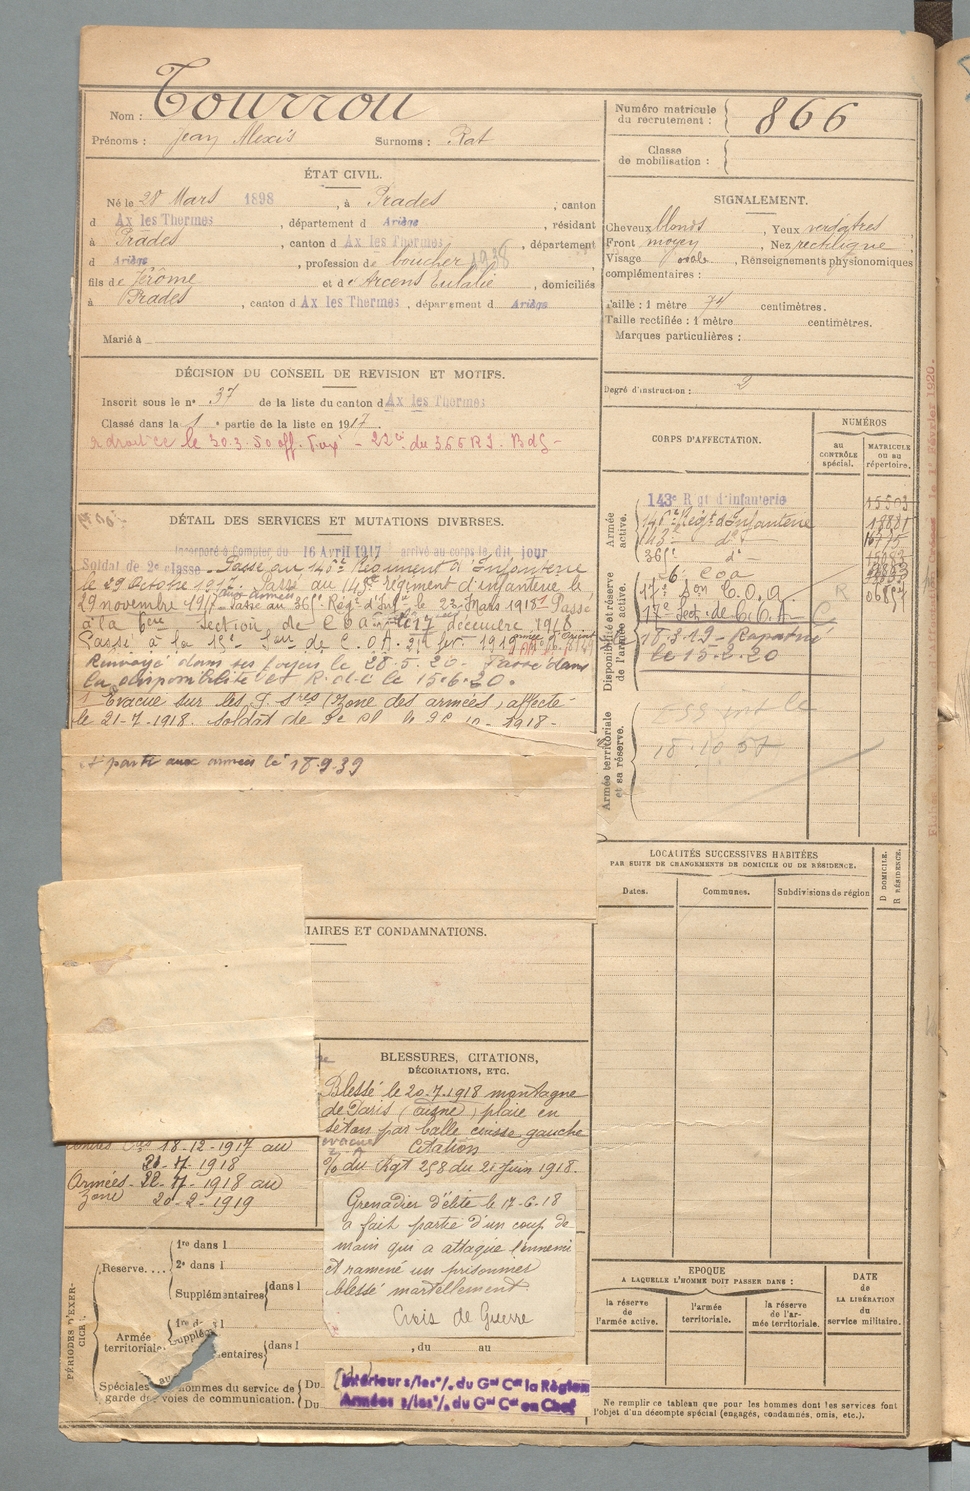 Nom : Tourrou
Prénoms : Jean Alexis Surnoms : Rat
Numéro matricule
du recrutement : 866
Classe
de mobilisation :
ÉTAT CIVIL.
Né le 28 Mars 1898, à Prades, canton
d Ax les Thermes, département d Ariège, résidant
à Prades, canton d Ax les Thermes, département
d Ariège, profession de boucher 1938
fils de Jérôme et d'Arcens Eulalie, domiciliés
à Prades, canton d Ax les Thermes, département d Ariège
Marié à
SIGNALEMENT.
Cheveux blonds, Yeux verdâtres
Front moyen, Nez rectiligne
Visage ovale, Renseignements physionomiques
complémentaires :
Taille : 1 mètre 74 centimètres.
Taille rectifiée : 1 mètre centimètres.
Marques particulières :
Degré d'instruction : 3
DÉCISION DU CONSEIL DE REVISION ET MOTIFS.
Inscrit sous le n° 37 de la liste du canton d Ax les Thermes
Classé dans la 1e partie de la liste en 1917
le 30.3.50 22 du 366 RI. Bdg -
DÉTAIL DES SERVICES ET MUTATIONS DIVERSES.
Incorporé à compter du 16 Avril 1917 arrivé au corps le dit jour
Soldat de 2e classe - Passé au 146e Régiment d'Infanterie
le 29 Octobre 1917. Passé au 143e régiment d'infanterie le
29 novembre 1917 aux armées Passé au Régt d'Infie le 23 Mars 1918 Passé
à la 6eme section de C O a le 17 décembre 1918
Passé à la 15e Son de C.O.A. fev. 1919 armée d'Orient
Renvoyé dans ses foyers le 28-5-20. Passé dans
la disponibilité et R. de l. le 15.6.20.
1 Evacué sur les (Zone des armées) affecté
le 21-7-1918. Soldat de 1918-
A parti aux armées le 18.9.39
CORPS D'AFFECTATION.
NUMÉROS
au
CONTRÔLE
spécial.
MATRICULE
ou au
répertoire.
Armée
active.
143e Rgt d'Infanterie 15503
146e Régt d'Infanterie 18881
143e do
do
6e COA
Disponibilité et réserve
de l'armée active.
17e Son C.O.a. R
17e Sect. de C.O.A. C
18-3-19- Rapatrié
le 15.2.20
Armée territoriale
et sa réserve.
le
18.10.57
LOCALITÉS SUCCESSIVES HABITÉES
PAR SUITE DE CHANGEMENTS DE DOMICILE OU DE RÉSIDENCE.
Dates. Communes. Subdivisions de région
D DOMICILE.
R RÉSIDENCE.
IAIRES ET CONDAMNATIONS.
BLESSURES, CITATIONS,
DÉCORATIONS, ETC.
Blessé le 20.7.1918 montagne
de Paris (aisne) plaie en
séton par balle cuisse gauche
évacué Citation
O/ du Rgt 258 du 21 Juin 1918.
Grenadier d'élite le 17-6-18
a fait partie d'un coup de
main qui a attaqué l'ennemi
et ramené un prisonnier
blessé mortellement
Croix de Guerre
18-12-1917 au
20-7-1918
Armées 22-7-1918 au
Zone 20-2-1919
PÉRIODES D'EXERCICE
Réserve....
1re dans l
2e dans l
Supplémentaires dans l
Armée
territoriale
1re d l
Supplé
mentaires dans l , du au
Spéciales hommes du service de
garde des voies de communication. Du
Du
Intérieur s/les °/. du Gal Ct la Région
Armées s/les °/. du Gal Ct en Chef
EPOQUE
A LAQUELLE L'HOMME DOIT PASSER DANS :
la réserve
de
l'armée active.
l'armée
territoriale.
la réserve
de l'ar-
mée territoriale.
DATE
de
LA LIBÉRATION
du
service militaire.
Ne remplir ce tableau que pour les hommes dont les services font
l'objet d'un décompte spécial (engagés, condamnés, omis, etc.).